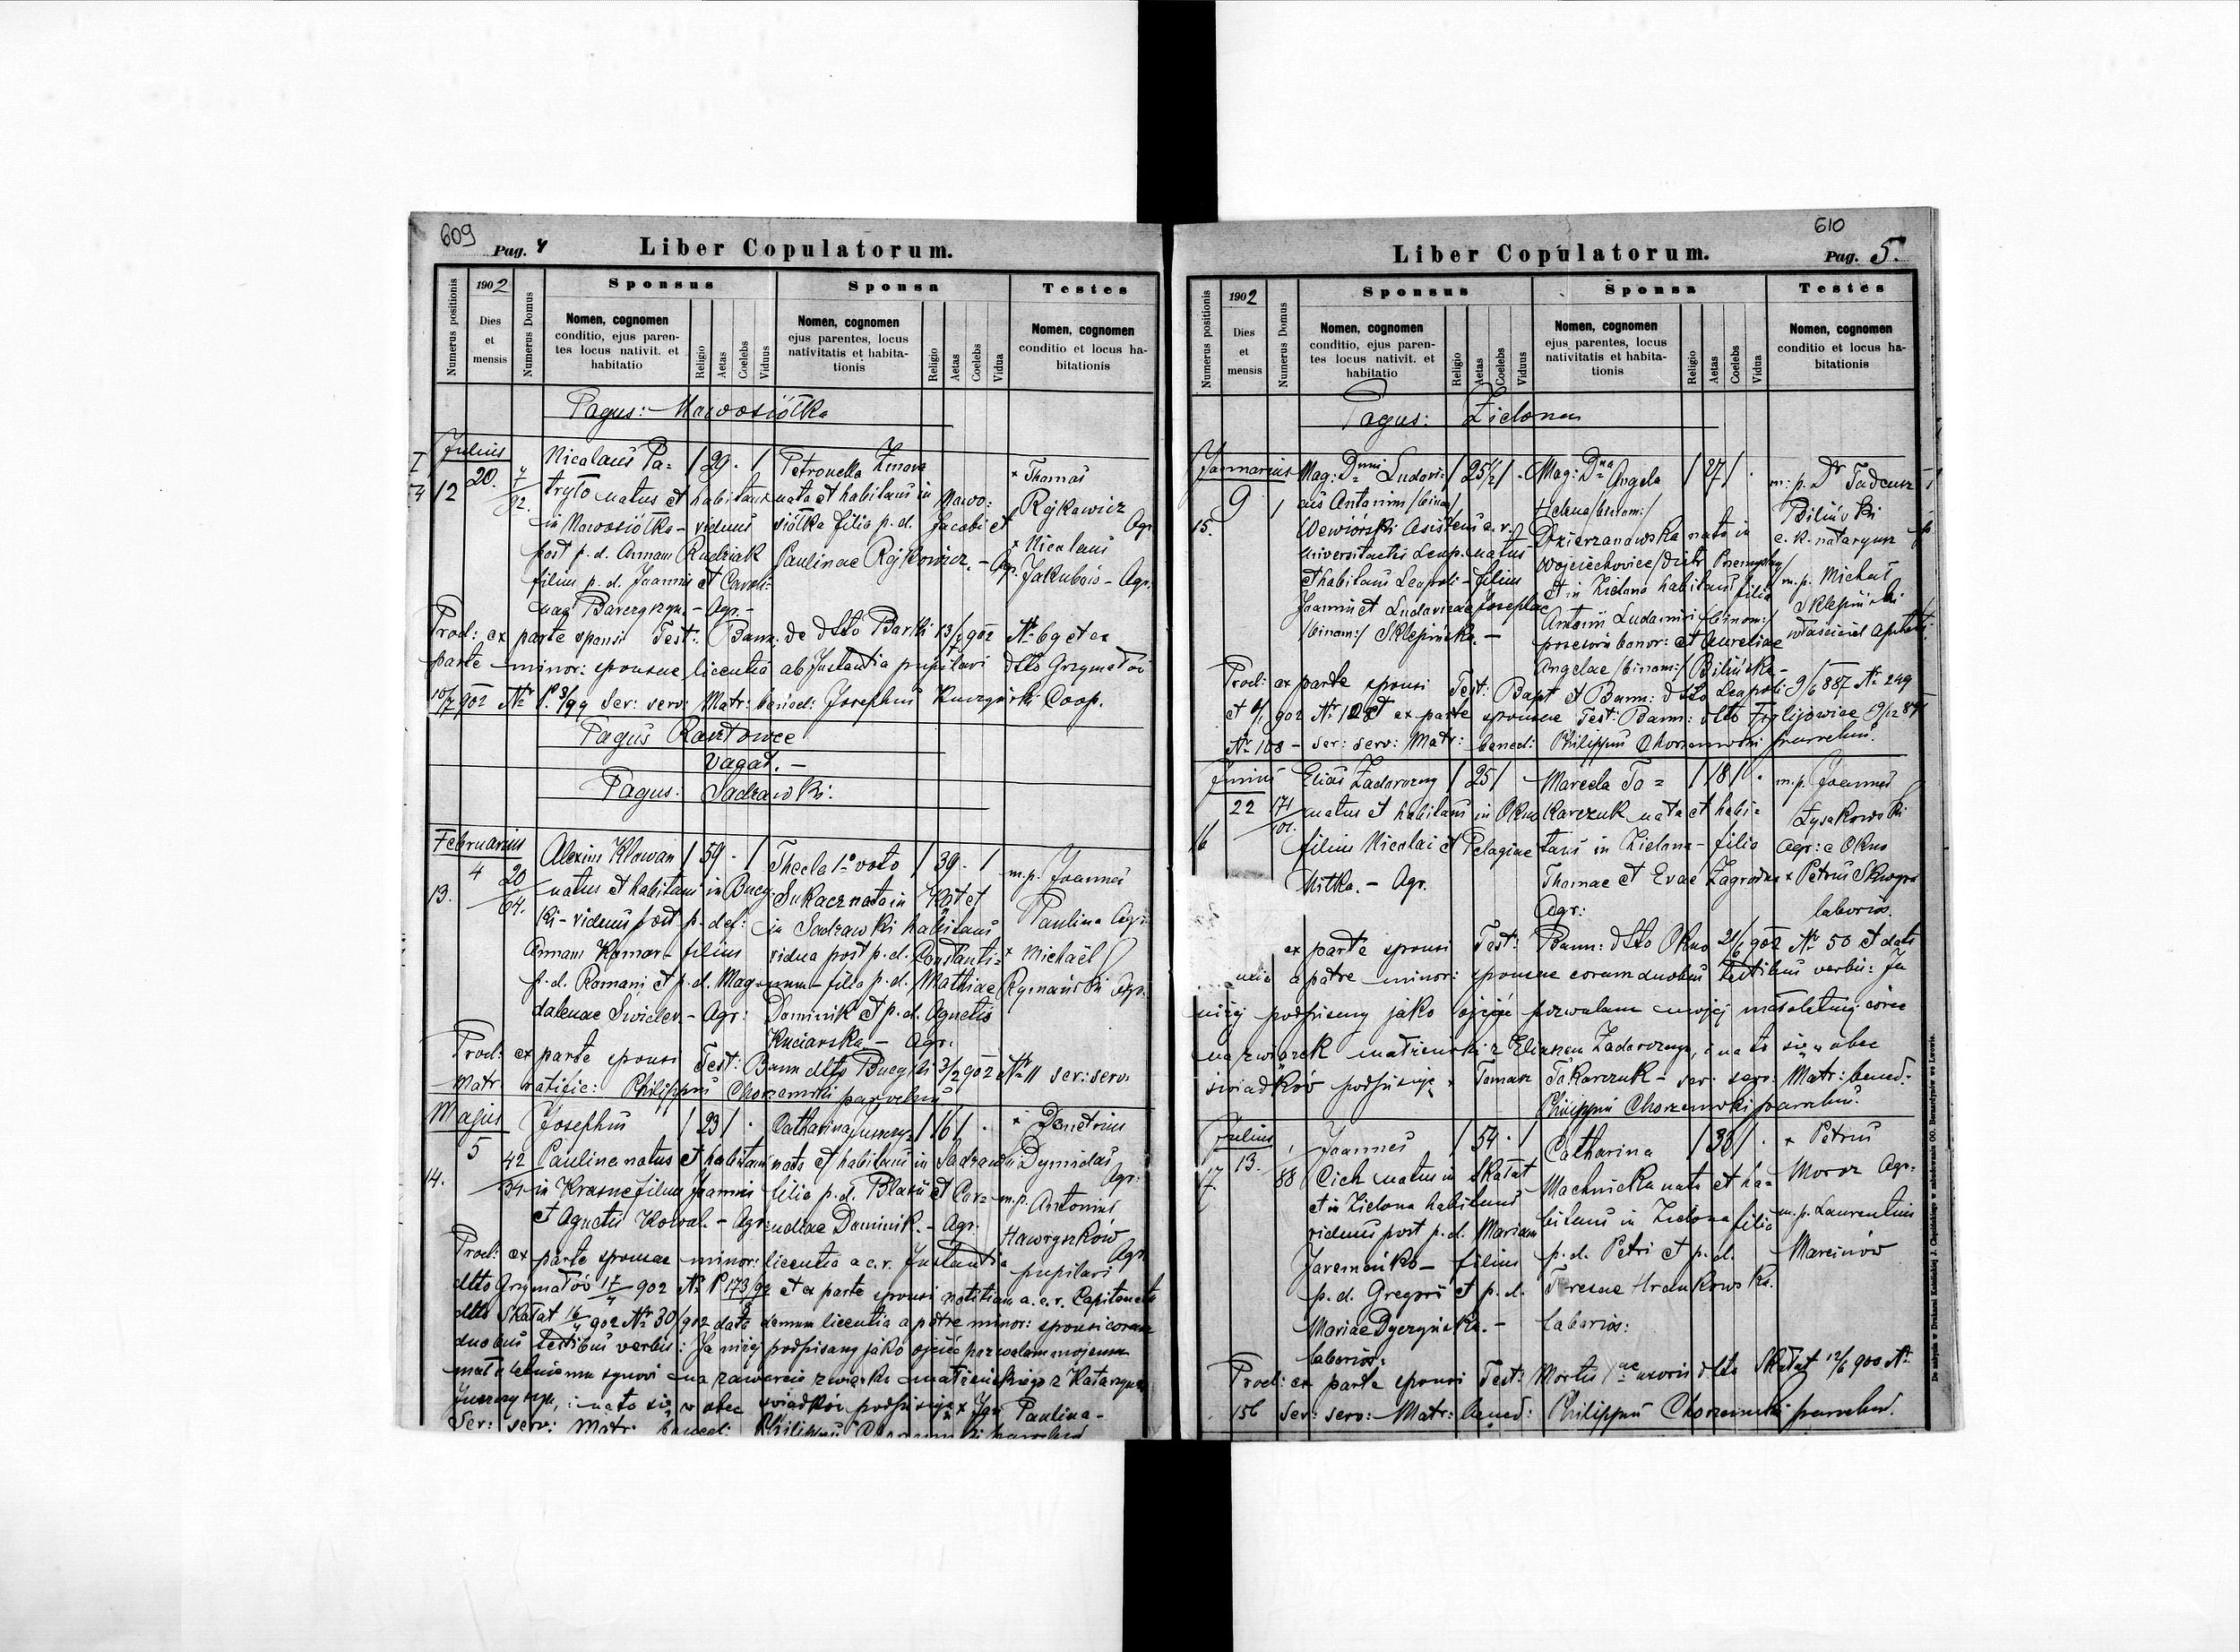 609
Pag. 4
Liber Copulatorum.
Numerus positionis
1902
Dies
et
mensis
Numerus Domus
Sponsus
Nomen, cognomen
conditio, ejus paren-
tes locus nativit. et
habitatio
Religio
Aetas
Coelebs
Viduus
Sponsa
Nomen, cognomen
ejus parentes, locus
nativitatis et habita-
tionis
Religio
Aetas
Coelebs
Vidua
Testes
Nomen, cognomen
conditio et locus ha-
bitationis
Pagus: Mawosiółka
Julius
12
20.
7/92.
Nicolaus Pa=
tryło natus et habitans
in Mawosiółka - viduus
post p.d. Annam Rudziak
filius p.d. Joannis et Caroli:
nae - Agr. -
29
Petronella
nata et habitans in Mawo:
siółka filia p.d. Jacobi et
Paulinae Rójkowicz. - Agr.
× Thomas
Rójkowicz Agr.
× Nicolaus
Jakubów - Agr.
Prod: ex parte sponsi Test: Bann: de dtto Barki 13/7 902 № 69 et ex
parte minor: sponsae licentia ab Instantia pupilari dtto Grzymałów
10/7 902 № P. 3/99 Ser: serv: Matr: bened: Josephus Kuczyński Coop.
Pagus Rasztowce
Vagat. -
Pagus: Sadzawki.
Februarius
13.
4
20/64.
Alexius Kłowan
natus et habitans in Bucy:
ki - viduus post p. def:
Annam Komar - filius
p.d. Romani et p.d. Mag=
dalenae - Agr:
59
Thecla 1º voto
Sukacz nata in Kąt et
in Sadzawki habitans
vidua post p.d. Constanti=
num - filia p.d. Mathiae
Dominik et p.d. Agnetis
Kuciarska - Agr.
39
m.p. Joannes
Paulina Agr.
× Michael
Rymański Agr.
Prod: ex parte sponsi Test: Bann dtto Bucyki 3/2 902 № 11 ser: serv:
Matr ratific: Philippus Chorzemski parochus
Majus
14.
5
42/34
Josephus
Paulina natus et habitans
in Krasne filius Joannis
et Agnetis Kowal. - Agr:
23
Catharina
nata et habitans in Sadzawki
filia p.d. Blasii et Cor=
neliae Dominik. - Agr.
16
× Demetrius
Dymidas Agr:
m.p. Antonius
Hawryszków Agr.
Prod: ex parte sponsae minor: licentia a c.r. Instantia pupilari
dtto Grzymałów 17/4 902 № P 173/92 et ex parte sponsi notitiam a c.r. Capitaneatu
dtto Skałat 16/4 902 № 30/902 data demum licentia a patre minor: sponsi coram
duobus testibus verbis: Ja niżej podpisany jako ojciec pozwalam mojemu
małoletniemu synowi na zawarcie związku małżeńskiego z Katarzyną
i na to się w obec świadków podpisuję × Jan Paulina -
Ser: serv: Matr: bened: Philippus Chorzemski parochus
610
Pag. 5.
Liber Copulatorum.
Numerus positionis
1902
Dies
et
mensis
Numerus Domus
Sponsus
Nomen, cognomen
conditio, ejus paren-
tes locus nativit. et
habitatio
Religio
Aetas
Coelebs
Viduus
Sponsa
Nomen, cognomen
ejus parentes, locus
nativitatis et habita-
tionis
Religio
Aetas
Coelebs
Vidua
Testes
Nomen, cognomen
conditio et locus ha-
bitationis
Pagus: Zielona
Januarius
15.
9
1
Mag: Dnus Ludovi:
cus Antonius /binom:/
Wewiorski Asistens c.r.
Universitatis Leop. natus
et habitans Leopoli - filius
Joannis et Ludovicae Josephae
/binom:/ Sklepińska. -
25½
Mag: Dna Angela
Helena /binom:/
Dzierzanowska nata in
Wojciechowice /Distr Przemyślany/
et in Zielona habitans filia
Antonii Ludomiri /binom:/
posesoris bonor: et Aureliae
Angelae /binom:/ Bilińska -
27
m.p. Dr Tadeusz
Biliński
c.k. notaryusz
m.p. Michał
Sklepiński
właściciel apteki
Prod: ex parte sponsi Test: Bapt et Bann: dtto Leopoli 9/6 887 № 249
et ex parte sponsae Test: Bann: dtto
№ 108 - ser: serv: Matr: bened: Philippus Chorzemski parochus.
Junius
16
22
171/101.
Elias Zadorozny
natus et habitans in Okno
filius Nicolai et Pelagiae
Mitka. - Agr.
25
Marcela To=
karczuk nata et habi=
tans in Zielona - filia
Thomae et Evae Zagrodna
Agr:
18
m.p. Joannes
Łysakowski
Agr: e Okno
× Petrus
laborios.
ex parte sponsi Test: Bann: dtto Okno 21/6 902 № 50 et data
a patre minor: sponsae coram duobus testibus verbis: Ja
niżej podpisany jako ojciec pozwalam mojej małoletniej córce
na związek małżeński z Eliaszem Zadorozny, i na to się w obec
świadków podpisuję × Tomasz Tokarczuk - ser: serv: Matr: bened:
Philippus Chorzemski parochus.
Julius
17.
13.
88
Joannes
Cich natus in Skałat
et in Zielona habitans
viduus post p.d. Mariam
Jaremińko - filius
p.d. Gregorii et p.d.
Mariae Dyczyńska. -
laborios:
54
Catharina
Machnicka nata et ha=
bitans in Zielona filia
p.d. Petri et p.d.
Teresae Hrankowska.
laborios:
38
× Petrus
Moroz Agr:
m.p. Laurentius
Marcinów
Prod: ex parte sponsi Test: Mortis 1ae uxoris dtto Skałat 12/6 900 №
156 Ser: serv: Matr: bened: Philippus Chorzemski parochus.
De nabycia w Drukarni Katolickiej J. Chęcińskiego w zabudowaniu OO. Bernardynów we Lwowie.